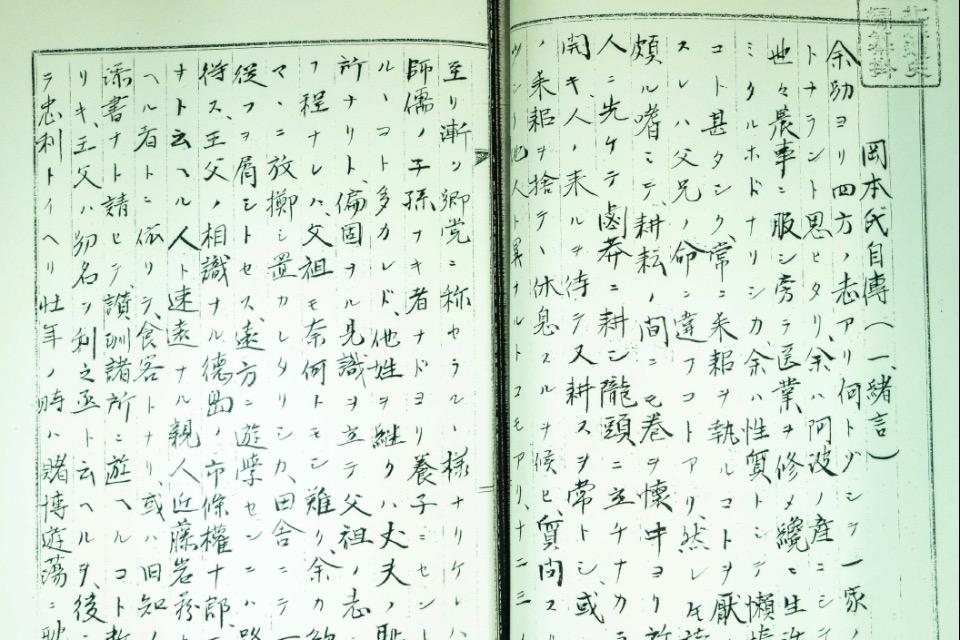 北海道史
編纂掛
岡本氏自傳（一、緒言）
余幼ヨリ四方ノ志アリ何トゾシテ一家
トナラント思ヒタリ、余ハ阿波ノ産ニシテ
世々農事ニ服シ旁ラ医業ヲ修メ纔ニ生
ミタルホドナリシカ、余ハ性質トシテ懶惰
コト甚タシク、常ニ耒耜ヲ執ルコトヲ厭
スレハ父兄ノ命ニ違フコトアリ、然レ
頗ル嗜ミテ、耕耘ノ間ニモ巻ヲ懐中ヨリ
人ニ先ケテ鹵莽ニ耕シ隴頭ニ立チナカ
開キ、人ノ来ルヲ待テ又耕スヲ常トシ、或
ノ耒耜ヲ捨テヽ休息スルヲ候ヒ、質問ス
他人ト異ナルトコモアリ、十二三
至リ漸ク郷党ニ称セラルヽ様ナリケレハ
師儒ノ子孫ナキ者ナドヨリ養子ニセント
ルヽコト多カレド、他姓ヲ継クハ丈夫ノ恥
所ナリト、偏固ナル見識ヲ立テ父祖ノ志
フ程ナレハ、父祖モ奈何トモシ難リ、余カ
マヽニ放擲シ置カレタリシカ、田舎ニテ
従フヲ屑シトセス、遠方ニ遊學センニハ路
待ス、王父ノ相識ナル徳島ノ市條權十郎
ナト云ヘル人ト速遠ナル親人近藤岩
ヘル者トニ依リテ、食客トナリ、或ハ旧知ノ
添書ナト請ヒテ讃州諸所ニ遊ヘルコト
リキ、王父ハ幼名ヲ利之丞ト云ヘルヲ、後ニ
ラ忠利トイヘリ壮年ノ時ハ賭博遊蕩ニ耽